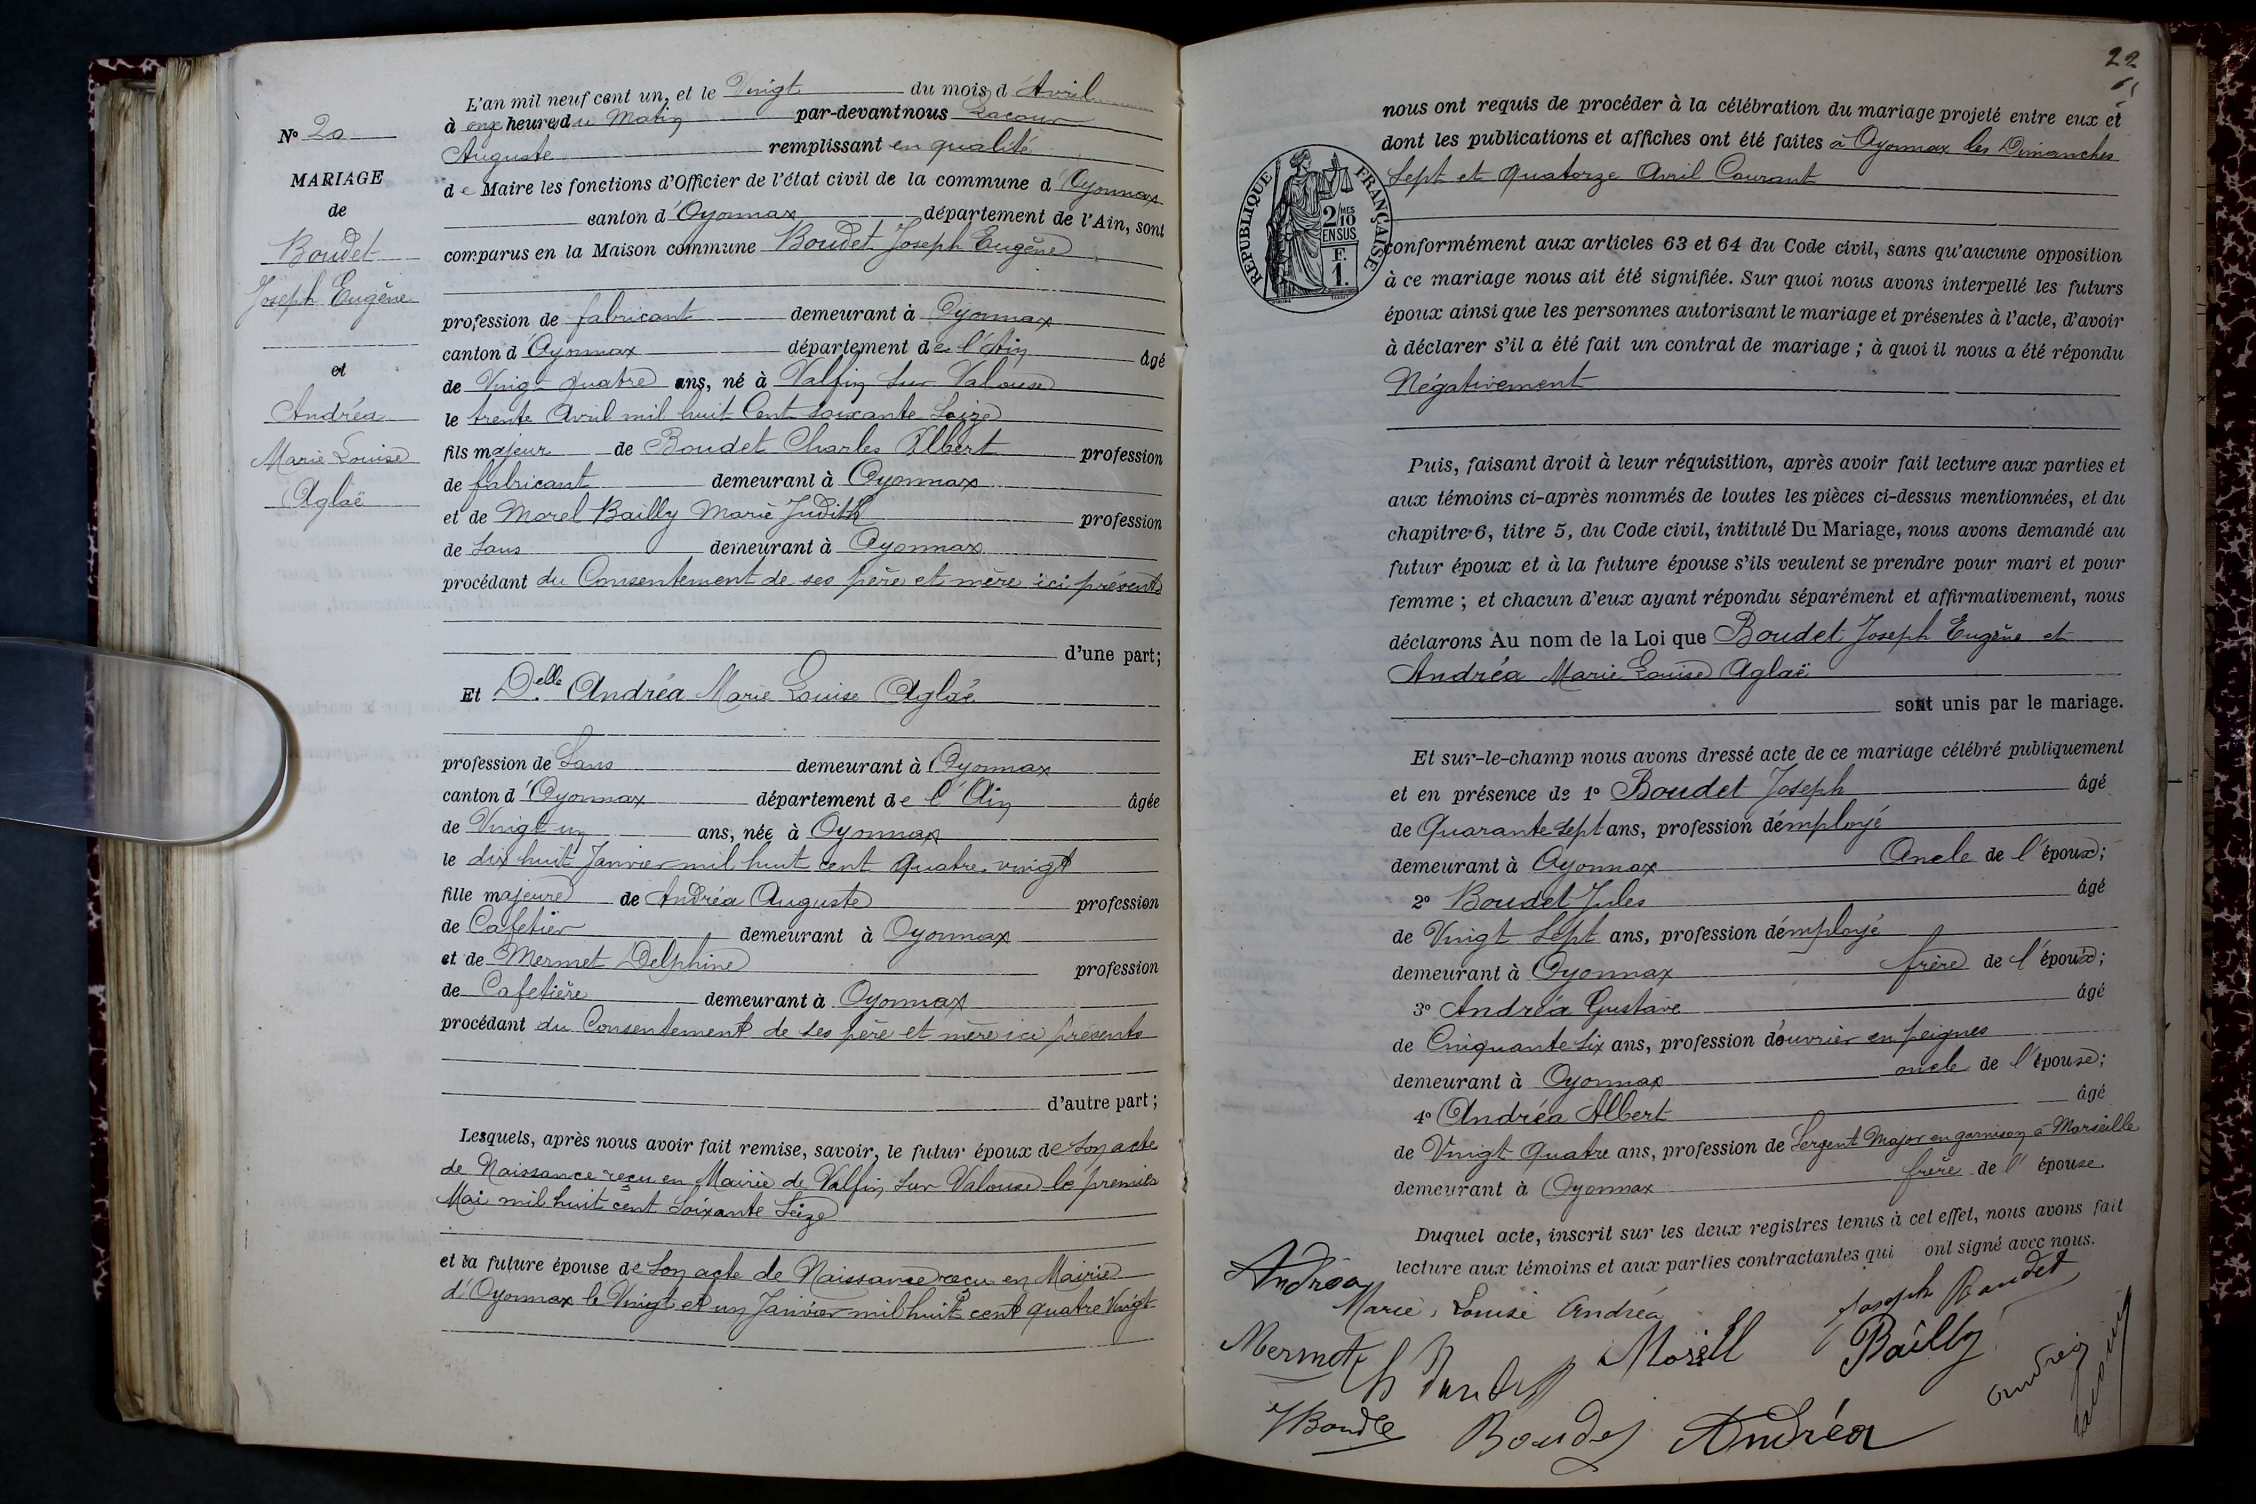 N° 20
MARIAGE
de
Boudet
Joseph Eugène
et
Andréa
Marie Louise
Aglaë
L'an mil neuf cent un, et le Vingt du mois d'Avril
à onze heures du Matin par-devant nous Lacour
Auguste remplissant en qualité
de Maire les fonctions d'Officier de l'état civil de la commune d'Oyonnax
canton d'Oyonnax département de l'Ain, sont
comparus en la Maison commune Boudet Joseph Eugène
profession de fabricant demeurant à Oyonnax
canton d'Oyonnax département de l'Ain âgé
de Vingt quatre ans, né à Valfin sur Valouse
le trente Avril mil huit Cent soixante Seize
fils majeur de Boudet Charles Albert profession
de fabricant demeurant à Oyonnax
et de Morel Bailly Marie Judith profession
de Sans demeurant à Oyonnax
procédant du Consentement de ses père et mère ici présents
d'une part;
Et Delle Andréa Marie Louise Aglaé
profession de Sans demeurant à Oyonnax
canton d'Oyonnax département de l'Ain âgée
de Vingt un ans, née à Oyonnax
le dix huit Janvier mil huit cent quatre vingt
fille majeure de Andréa Auguste profession
de Cafetier demeurant à Oyonnax
et de Mermet Delphine profession
de Cafetière demeurant à Oyonnax
procédant du Consentement de ses père et mère ici présents
d'autre part;
Lesquels, après nous avoir fait remise, savoir, le futur époux de Son acte
de Naissance reçu en Mairie de Valfin sur Valouse le premier
Mai mil huit cent Soixante Seize
et la future épouse de Son acte de Naissance reçu en Mairie
d'Oyonnax le Vingt et un Janvier mil huit cent quatre Vingt
22
nous ont requis de procéder à la célébration du mariage projeté entre eux et
dont les publications et affiches ont été faites à Oyonnax les Dimanches
Sept et Quatorze Avril Courant
RÉPUBLIQUE FRANÇAISE
2/10 MES
EN SUS
F.
1.
conformément aux articles 63 et 64 du Code civil, sans qu'aucune opposition
à ce mariage nous ait été signifiée. Sur quoi nous avons interpellé les futurs
époux ainsi que les personnes autorisant le mariage et présentes à l'acte, d'avoir
à déclarer s'il a été fait un contrat de mariage; à quoi il nous a été répondu
Négativement
Puis, faisant droit à leur réquisition, après avoir fait lecture aux parties et
aux témoins ci-après nommés de toutes les pièces ci-dessus mentionnées, et du
chapitre 6, titre 5, du Code civil, intitulé Du Mariage, nous avons demandé au
futur époux et à la future épouse s'ils veulent se prendre pour mari et pour
femme; et chacun d'eux ayant répondu séparément et affirmativement, nous
déclarons Au nom de la Loi que Boudet Joseph Eugène et
Andréa Marie Louise Aglaë
sont unis par le mariage.
Et sur-le-champ nous avons dressé acte de ce mariage célébré publiquement
et en présence de 1° Boudet Joseph âgé
de Quarante Sept ans, profession d'employé
demeurant à Oyonnax Oncle de l'époux;
2° Boudet Jules âgé
de Vingt Sept ans, profession d'employé
demeurant à Oyonnax frère de l'époux;
3° Andréa Gustave âgé
de Cinquante Six ans, profession d'ouvrier en peignes
demeurant à Oyonnax oncle de l'épouse;
4° Andréa Albert âgé
de Vingt Quatre ans, profession de Sergent Major en garnison à Marseille
demeurant à Oyonnax frère de l'épouse
Duquel acte, inscrit sur les deux registres tenus à cet effet, nous avons fait
lecture aux témoins et aux parties contractantes qui ont signé avec nous.
Andréa
Marie Louise Andréa Joseph Boudet
Mermet Morel Bailly
Boudet Andréa